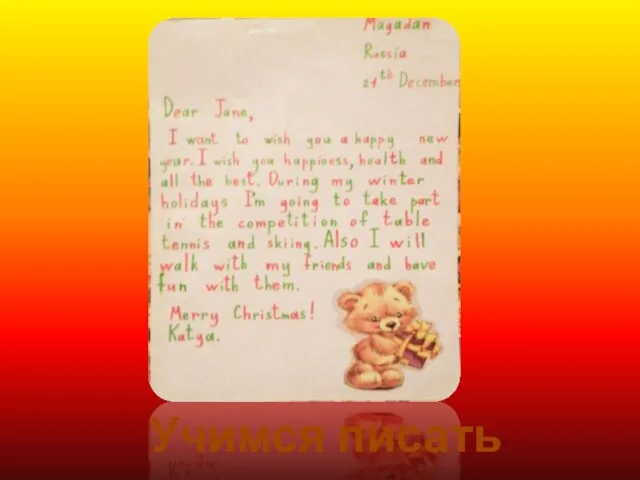 Magadan
Russia
21th December
Dear Jane,
I want to wish you a happy new
year. I wish you happiness, health and
all the best. During my winter
holidays I'm going to take part
in the competition of table
tennis and skiing. Also I will
walk with my friends and have
fun with them.
Merry Christmas!
Katya.
Учимся писать